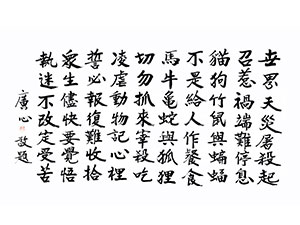 世界天災屠殺起
召惹禍端難停息
貓狗竹鼠與蝙蝠
不是給人作餐食
馬牛龜蛇與狐狸
切勿抓來宰殺吃
凌虐動物記心裡
誓必報復難收拾
衆生儘快要覺悟
執迷不改定受苦
廣心敬題